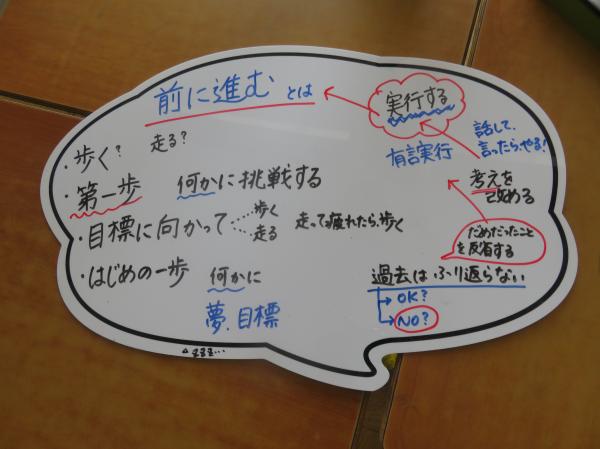 前に進むとは
・歩く? 走る?
・第一歩 何かに挑戦する
・目標に向かって 歩く
走る
走って疲れたら、歩く
・はじめの一歩 何かに
夢、目標
実行する
有言実行
話して、
言ったら、やる!
考えを
だめだったこと
を反省する
過去はふり返らない
OK?
NO?